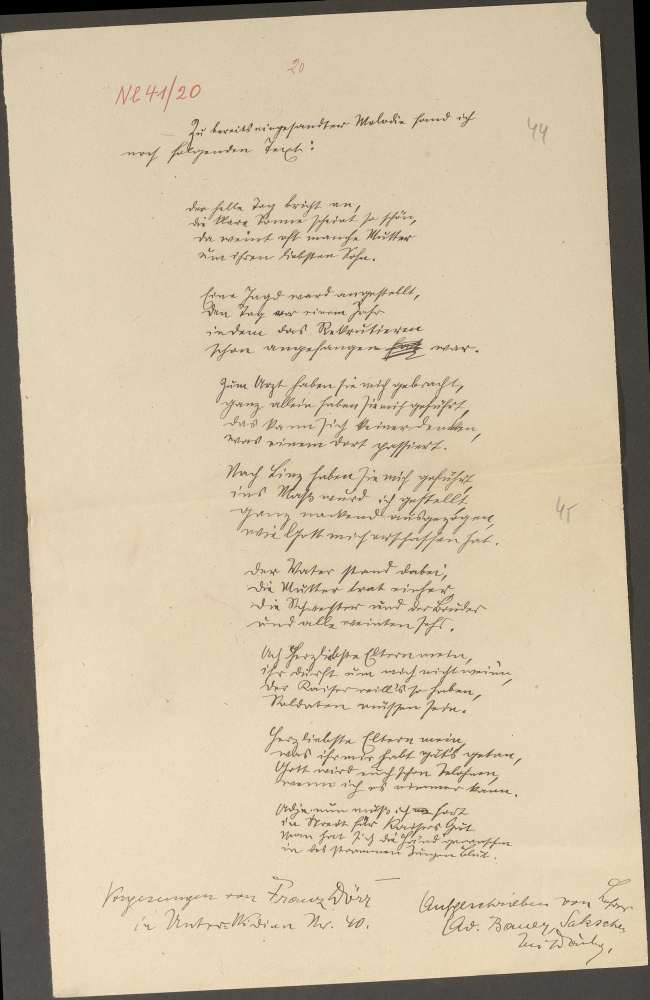 20
Nl 41/20
44
Zu bereits eingesandter Melodie fand ich
noch folgenden Text:
Der helle Tag bricht an,
die klare Sonne scheint so schön,
da weint oft manche Mutter
um ihren liebsten Sohn.
Eine Jagd ward angestellt,
den Tag vor einem Jahr
indem das Rekrutieren
schon angefangen war.
Zum Arzt haben sie mich gebracht,
ganz allein haben sie mich geführt,
das kann sich keiner denken,
was einem dort passiert.
Nach Linz haben sie mich geführt,
ins Maß wurd ich gestellt
ganz nackend ausgezogen,
wie Gott mich erschaffen hat.
45
Der Vater stand dabei,
die Mutter trat einher,
die Schwester und der Bruder
und alle weinten sehr.
Ach herzliebste Eltern mein,
ihr dürft um mich nicht weinen,
der Kaiser will's so haben,
Soldaten müssen sein.
Herzliebste Eltern mein,
was ihr mir habt gut's getan,
Gott wird euch schon belohnen,
wenn ich es nimmer kann.
Adje nun muß ich fort
in Streit für Kaisers Gut
Man hat sich die Hände gewaschen
in des strammen Jungen Blut.
Vorgesungen von Franz Dörr
in Unter Nr. 40.
Aufgeschrieben von Lehrer
Ad. Bauer,